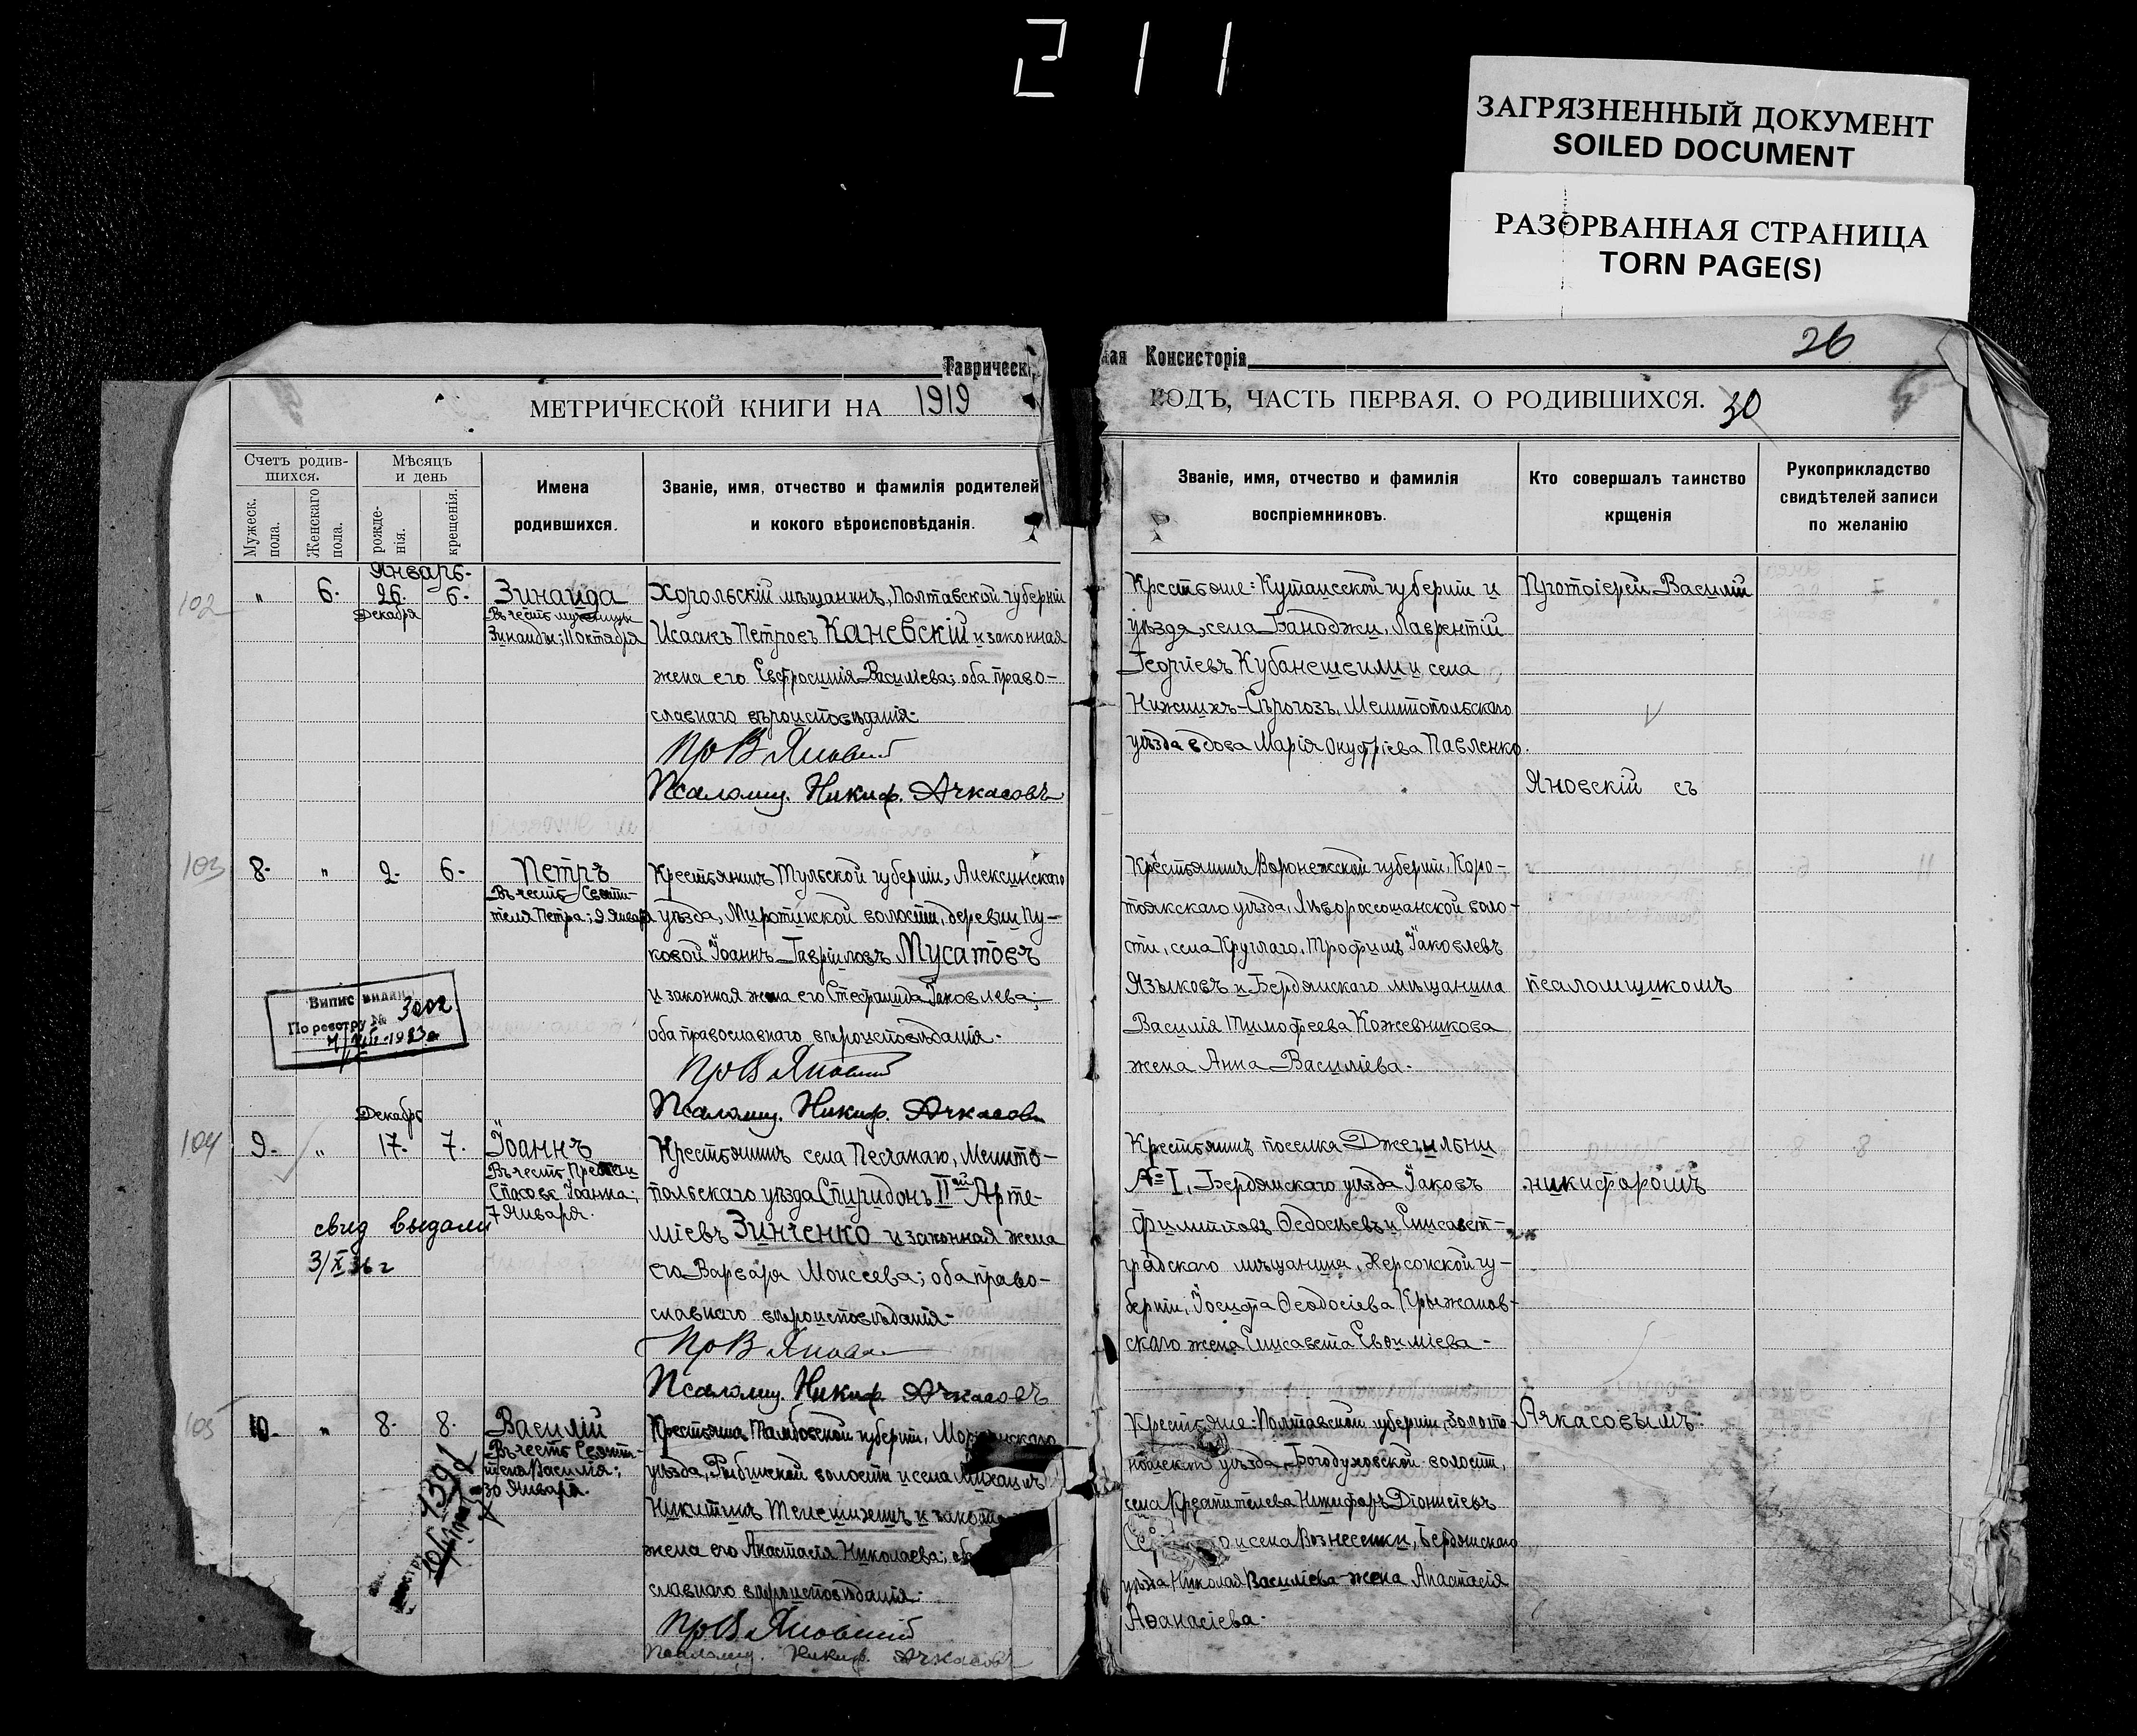 211
ЗАГРЯЗНЕННЫЙ ДОКУМЕНТ
SOILED DOCUMENT
РАЗОРВАННАЯ СТРАНИЦА
TORN PAGE(S)
Таврическ
ая Консисторія
26
МЕТРИЧЕСКОЙ КНИГИ НА 1919
ГОДЪ, ЧАСТЬ ПЕРВАЯ. О РОДИВШИХСЯ. 30
Счетъ родив-
шихся.
Мужеск.
пола.
Женскаго
пола.
Мѣсяцъ
и день
рожде-
нія.
крещенія.
Имена
родившихся.
Званіе, имя, отчество и фамилія родителей
и кокого вѣроисповѣданія.
Званіе, имя, отчество и фамилія
воспріемниковъ.
Кто совершалъ таинство
крщенія
Рукоприкладство
свидѣтелей записи
по желанію
Январь.
102 " 6. 26. 6.
Декабря
Зинаида
Въ честь мученицы
Зинаиды; 11 октября
Хорольскій мѣщанинъ, Полтавской губерніи
Исаакъ Петровъ Каневскій и законная
жена его Евфросинія Василіева; оба право-
славнаго вѣроисповѣданія.
Пр В Яновскій
Псаломщ. Никиф. Ачкасовъ
Крестьяне: Кутаисской губерніи и
уѣзда, села Баноджи, Лаврентій
Георгіевъ Кубанешвили и села
Нижнихъ-Сѣрогозъ, Мелитопольскаго
уѣзда вдова Марія Онуфріева Павленко.
Протоіерей Василій
Яновскій съ
103 8. " 2. 6.
Петръ
Въ честь Святи-
теля Петра; 9 Января
Крестьянинъ Тульской губерніи, Алексинскаго
уѣзда, Миротинской волости, деревни Пу-
ковой Іоаннъ Гавріиловъ Мусатовъ
и законная жена его Стефанида Іаковлева;
оба православнаго вѣроисповѣданія.
Пр В Яновскій
Псаломщ. Никиф. Ачкасовъ
Випис видано
По реєстру № 3002
Крестьянинъ Воронежской губерніи, Коро-
тоякскаго уѣзда, Лѣворосошанской воло-
сти, села Круглаго, Трофимъ Іаковлевъ
Языковъ и Бердянскаго мѣщанина
Василія Тимофеева Кожевникова
жена Анна Василіева.
псаломщикомъ
Декабр
104 9. " 17. 7.
Іоаннъ
Въ честь
Іоанна;
7 Января.
свид выдали
3/X 36 г
Крестьянинъ села Песчанаго, Мелито-
польскаго уѣзда Спиридонъ IIой Арте-
міевъ Зинченко и законная жена
его Варвара Моисеева; оба право-
славнаго вѣроисповѣданія.
Пр В Яновскій
Псаломщ. Никиф. Ачкасовъ
Крестьянинъ поселка Джегильни
№ I, Бердянскаго уѣзда Іаковъ
Филипповъ Ѳедосѣевъ и Елисавет-
градскаго мѣщанина, Херсонской гу-
берніи, Іосифа Ѳеодосіева Крыжанов-
скаго жена Елисавета Евѳиміева.
никифоромъ
105 10. " 8. 8.
Василій
Въ честь Святи-
теля Василія;
30 Января.
1392
Крестьянинъ Тамбовской губерніи,
уѣзда, Рыбинской волости и села Михаилъ
Никитинъ Телешихинъ и
жена его Анастасія Николаева;
славнаго вѣроисповѣданія.
Пр В Яновскій
Псаломщ. Никиф. Ачкасовъ
Крестьяне: Полтавской губерніи, Золото-
ношскаго уѣзда, Богодуховской волости,
села Никифоръ Діонисіевъ
и села Вознесенки, Бердянскаго
уѣзда Николая Василіева жена Анастасія
Аѳанасіева.
Ачкасовымъ.